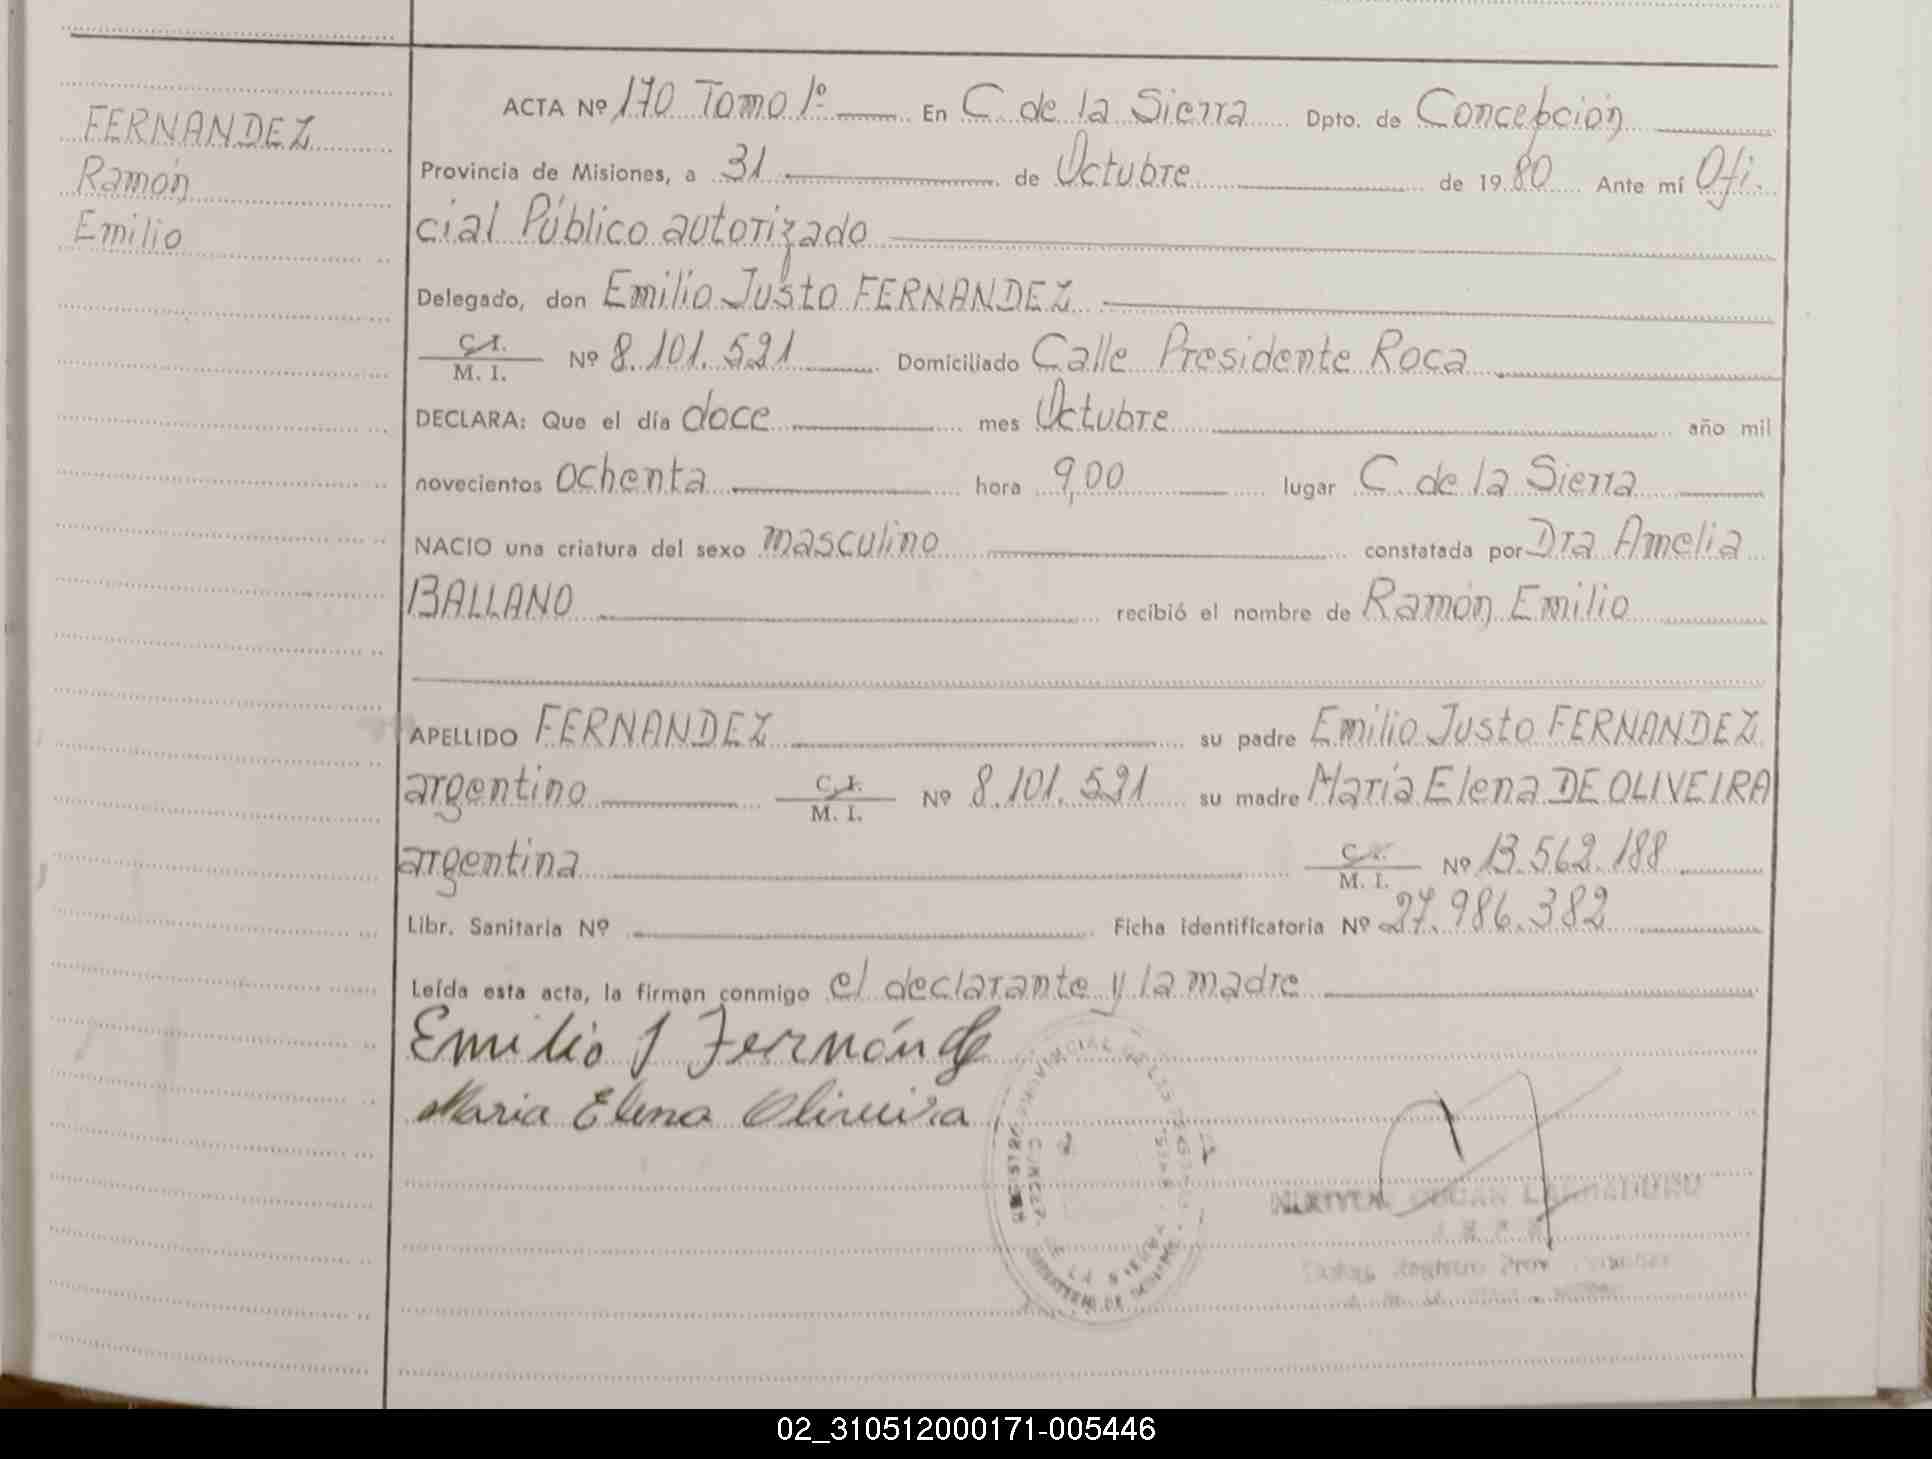 FERNANDEZ
Ramón
Emilio
ACTA Nº 170 Tomo 1º En C. de la Sierra Dpto. de Concepción
Provincia de Misiones, a 31 de Octubre de 1980 Ante mí Ofi.
cial Público autorizado
Delegado, don Emilio Justo FERNANDEZ
C.I. / M. I. Nº 8.101.591 Domiciliado Calle Presidente Roca
DECLARA: Que el día doce mes Octubre año mil
novecientos ochenta hora 9,00 lugar C. de la Sierra
NACIO una criatura del sexo masculino constatada por Dra Amelia
BALLANO recibió el nombre de Ramón Emilio
APELLIDO FERNANDEZ su padre Emilio Justo FERNANDEZ
argentino C.I. / M. I. Nº 8.101.591 su madre María Elena DE OLIVEIRA
argentina C.I. / M. I. Nº 13.562.188
Libr. Sanitaria Nº Ficha identificatoria Nº 27.986.382
Leída esta acta, la firman conmigo el declarante y la madre
Emilio J Fernández
Maria Elena Oliveira
02_310512000171-005446